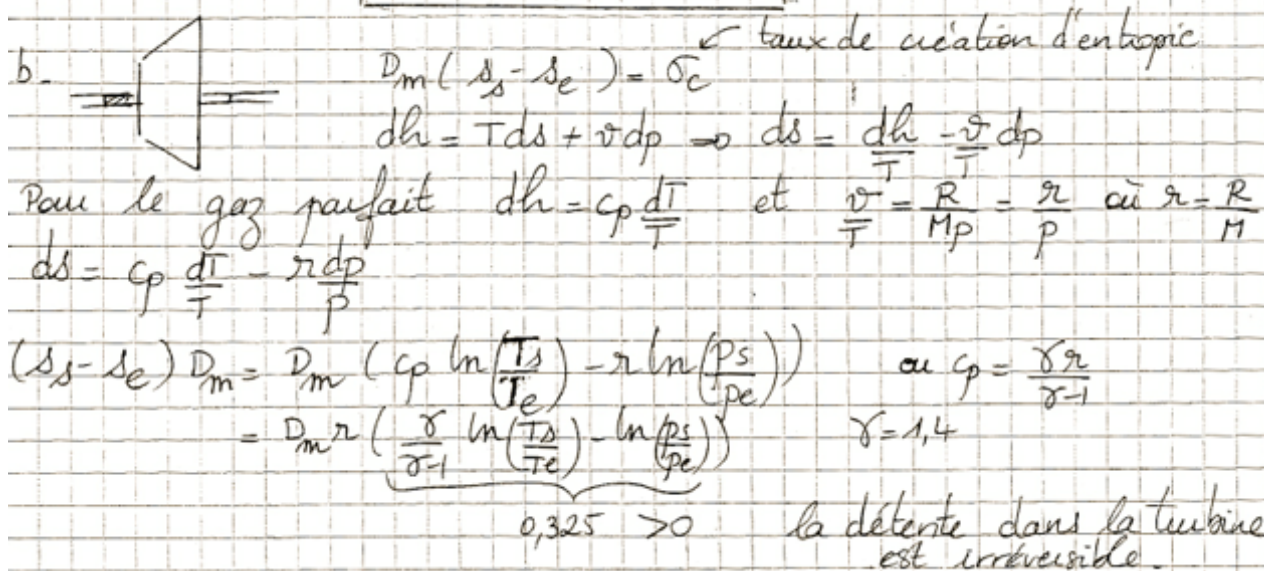 taux de création d'entropie
b. D_m ( s_s - s_e ) = σ_c
dh = Tds + vdp ⇒ ds = dh/T - v/T dp
Pour le gaz parfait dh = c_p dT/T et v/T = R/Mp = r/p où r = R/M
ds = c_p dT/T - r dp/p
(s_s - s_e) D_m = D_m ( c_p ln(T_s/T_e) - r ln(p_s/p_e) ) ou c_p = γr/γ-1
= D_m r ( γ/γ-1 ln(T_s/T_e) - ln(p_s/p_e) ) γ = 1,4
0,325 > 0 la détente dans la turbine
est irréversible.